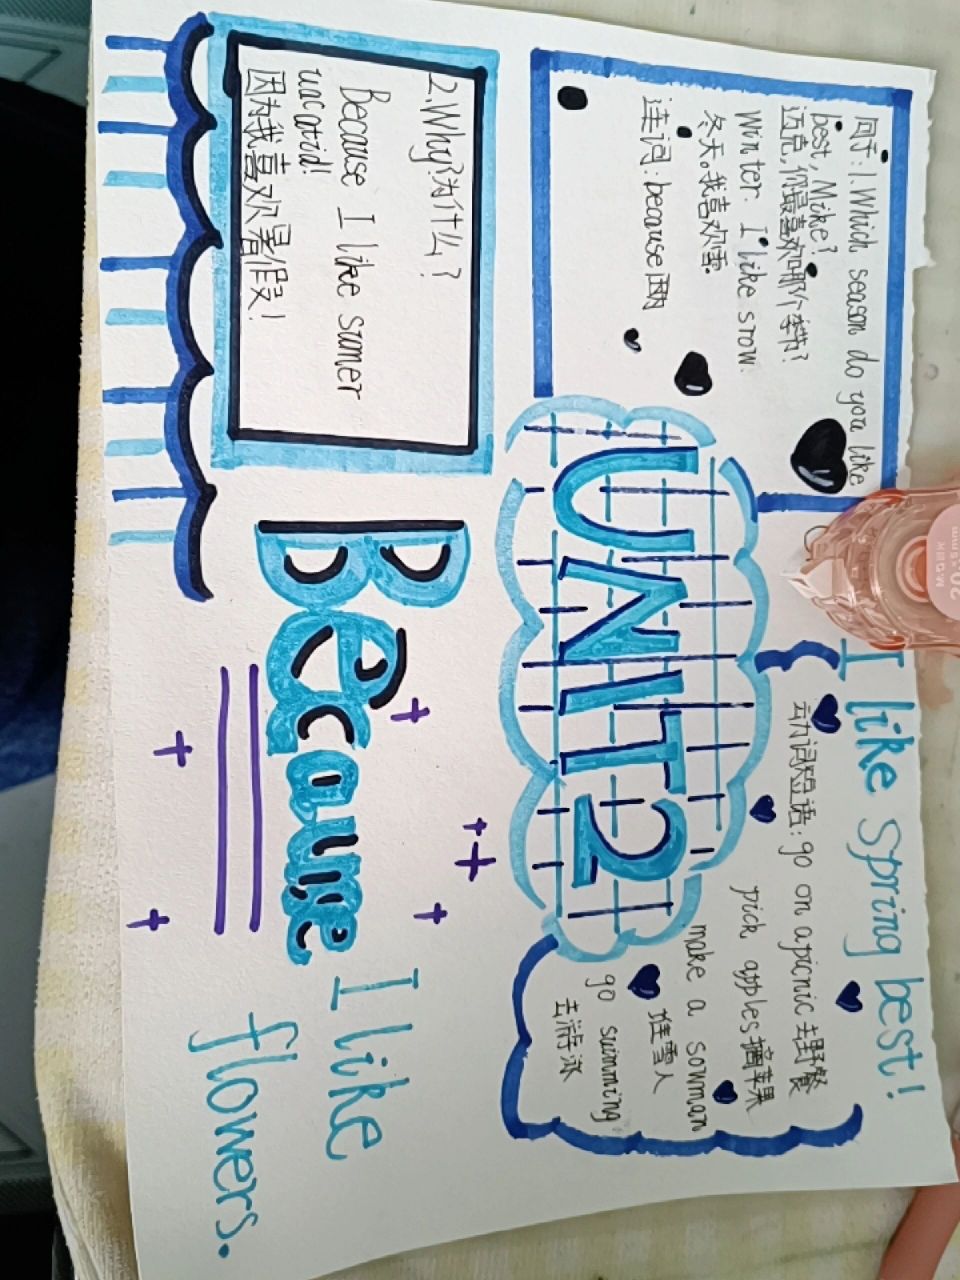 句子:1.Which season do you like
best, Mike?
迈克,你最喜欢哪个季节?
Winter. I like snow.
冬天。我喜欢雪。
连词:because因为
I like Spring best!
动词短语:go on a picnic 去野餐
pick apples摘苹果
make a sowman
堆雪人
go swimming
去游泳
UNIT2
2.Why?为什么?
Because I like summer
vacatid!
因为我喜欢暑假!
Because I like
flowers.